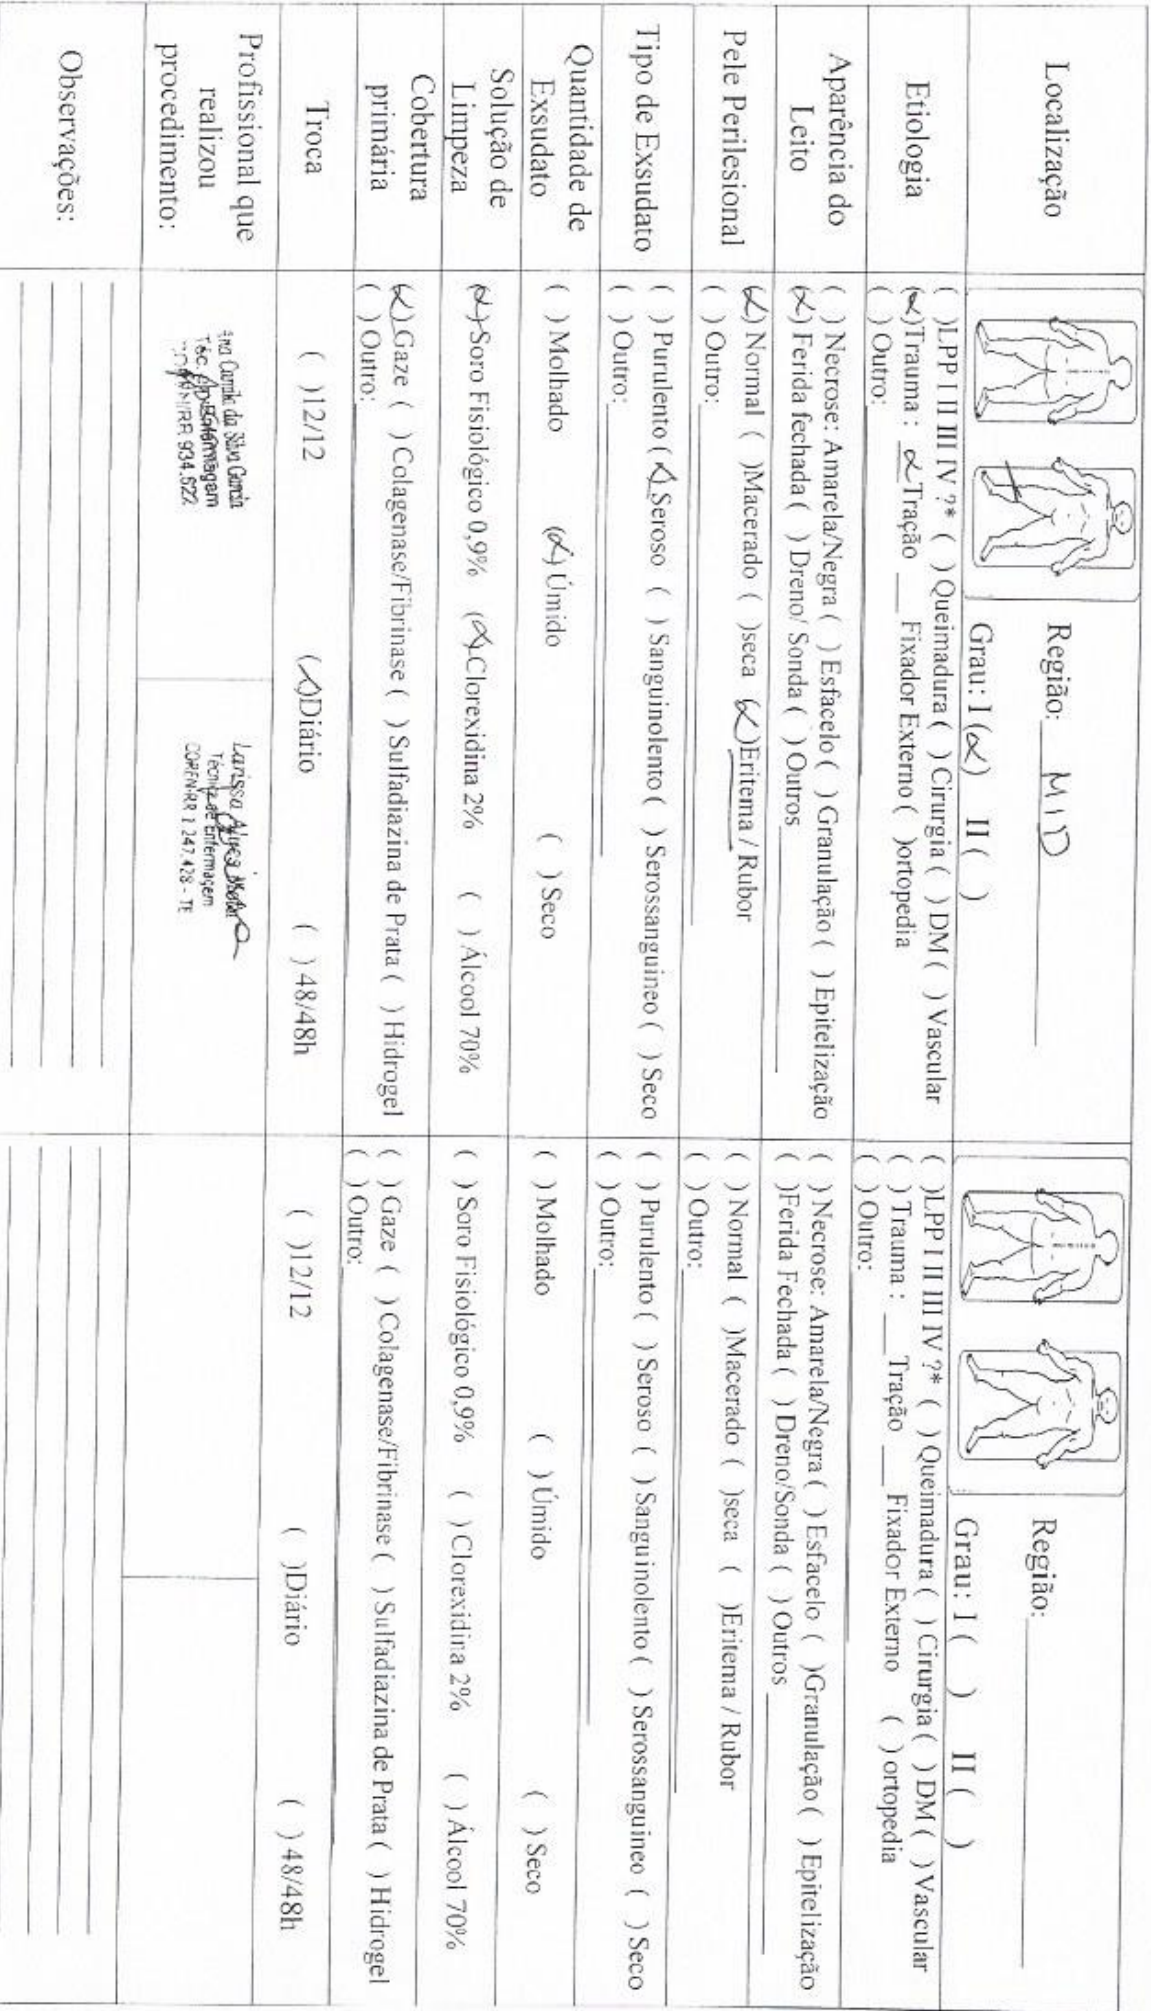 Localização
Região: MID
Grau: I (X) II ( )
Região:
Grau: I ( ) II ( )
Etiologia
( )LPP I II III IV ?* ( )Queimadura ( ) Cirurgia ( ) DM ( ) Vascular
(X)Trauma : X Tração ___ Fixador Externo ( )ortopedia
( ) Outro:
( )LPP I II III IV ?* ( ) Queimadura ( ) Cirurgia ( ) DM ( ) Vascular
( ) Trauma : ___ Tração ___ Fixador Externo ( ) ortopedia
( ) Outro:
Aparência do
Leito
( ) Necrose: Amarela/Negra ( ) Esfacelo ( ) Granulação ( ) Epitelização
(X) Ferida fechada ( ) Dreno/ Sonda ( ) Outros
( ) Necrose: Amarela/Negra ( ) Esfacelo ( )Granulação ( ) Epitelização
( )Ferida Fechada ( ) Dreno/Sonda ( ) Outros
Pele Perilesional
(X) Normal ( )Macerado ( )seca (X)Eritema / Rubor
( ) Outro:
( ) Normal ( )Macerado ( )seca ( )Eritema / Rubor
( ) Outro:
Tipo de Exsudato
( ) Purulento (X) Seroso ( ) Sanguinolento ( ) Serossanguineo ( ) Seco
( ) Outro:
( ) Purulento ( ) Seroso ( ) Sanguinolento ( ) Serossanguineo ( ) Seco
( ) Outro:
Quantidade de
Exsudato
( ) Molhado (X) Úmido ( ) Seco
( ) Molhado ( ) Úmido ( ) Seco
Solução de
Limpeza
(X) Soro Fisiológico 0,9% (X) Clorexidina 2% ( ) Álcool 70%
( ) Soro Fisiológico 0,9% ( ) Clorexidina 2% ( ) Álcool 70%
Cobertura
primária
(X) Gaze ( ) Colagenase/Fibrinase ( ) Sulfadiazina de Prata ( ) Hidrogel
( ) Outro:
( ) Gaze ( ) Colagenase/Fibrinase ( ) Sulfadiazina de Prata ( ) Hidrogel
( ) Outro:
Troca
( )12/12 (X)Diário ( ) 48/48h
( )12/12 ( )Diário ( ) 48/48h
Profissional que
realizou
procedimento:
Ana Camila da Silva Garcia
Téc. Enfermagem
934.522
Larissa
Técnica de Enfermagem
COREN-RR 1 247.428 - TE
Observações: